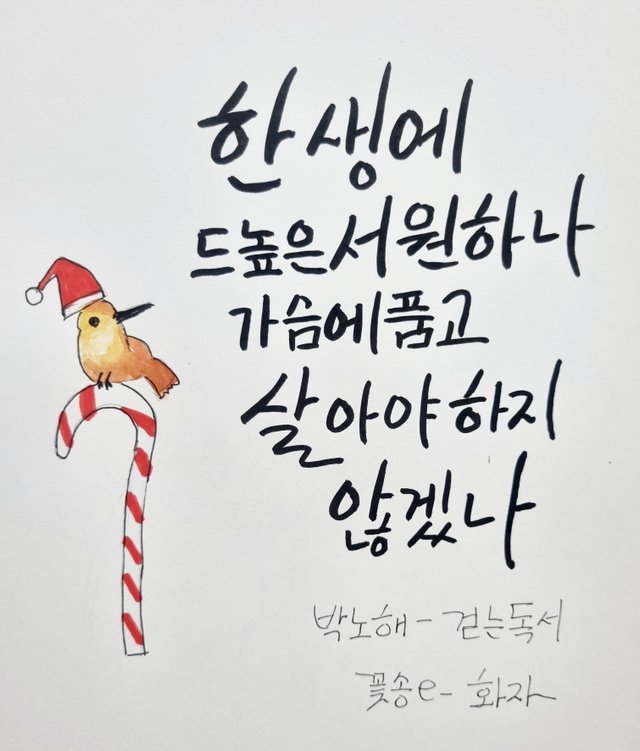 한 생에
드높은 서원 하나
가슴에 품고
살아야 하지
않겠나
박노해 - 걷는독서
꽃송e - 화자